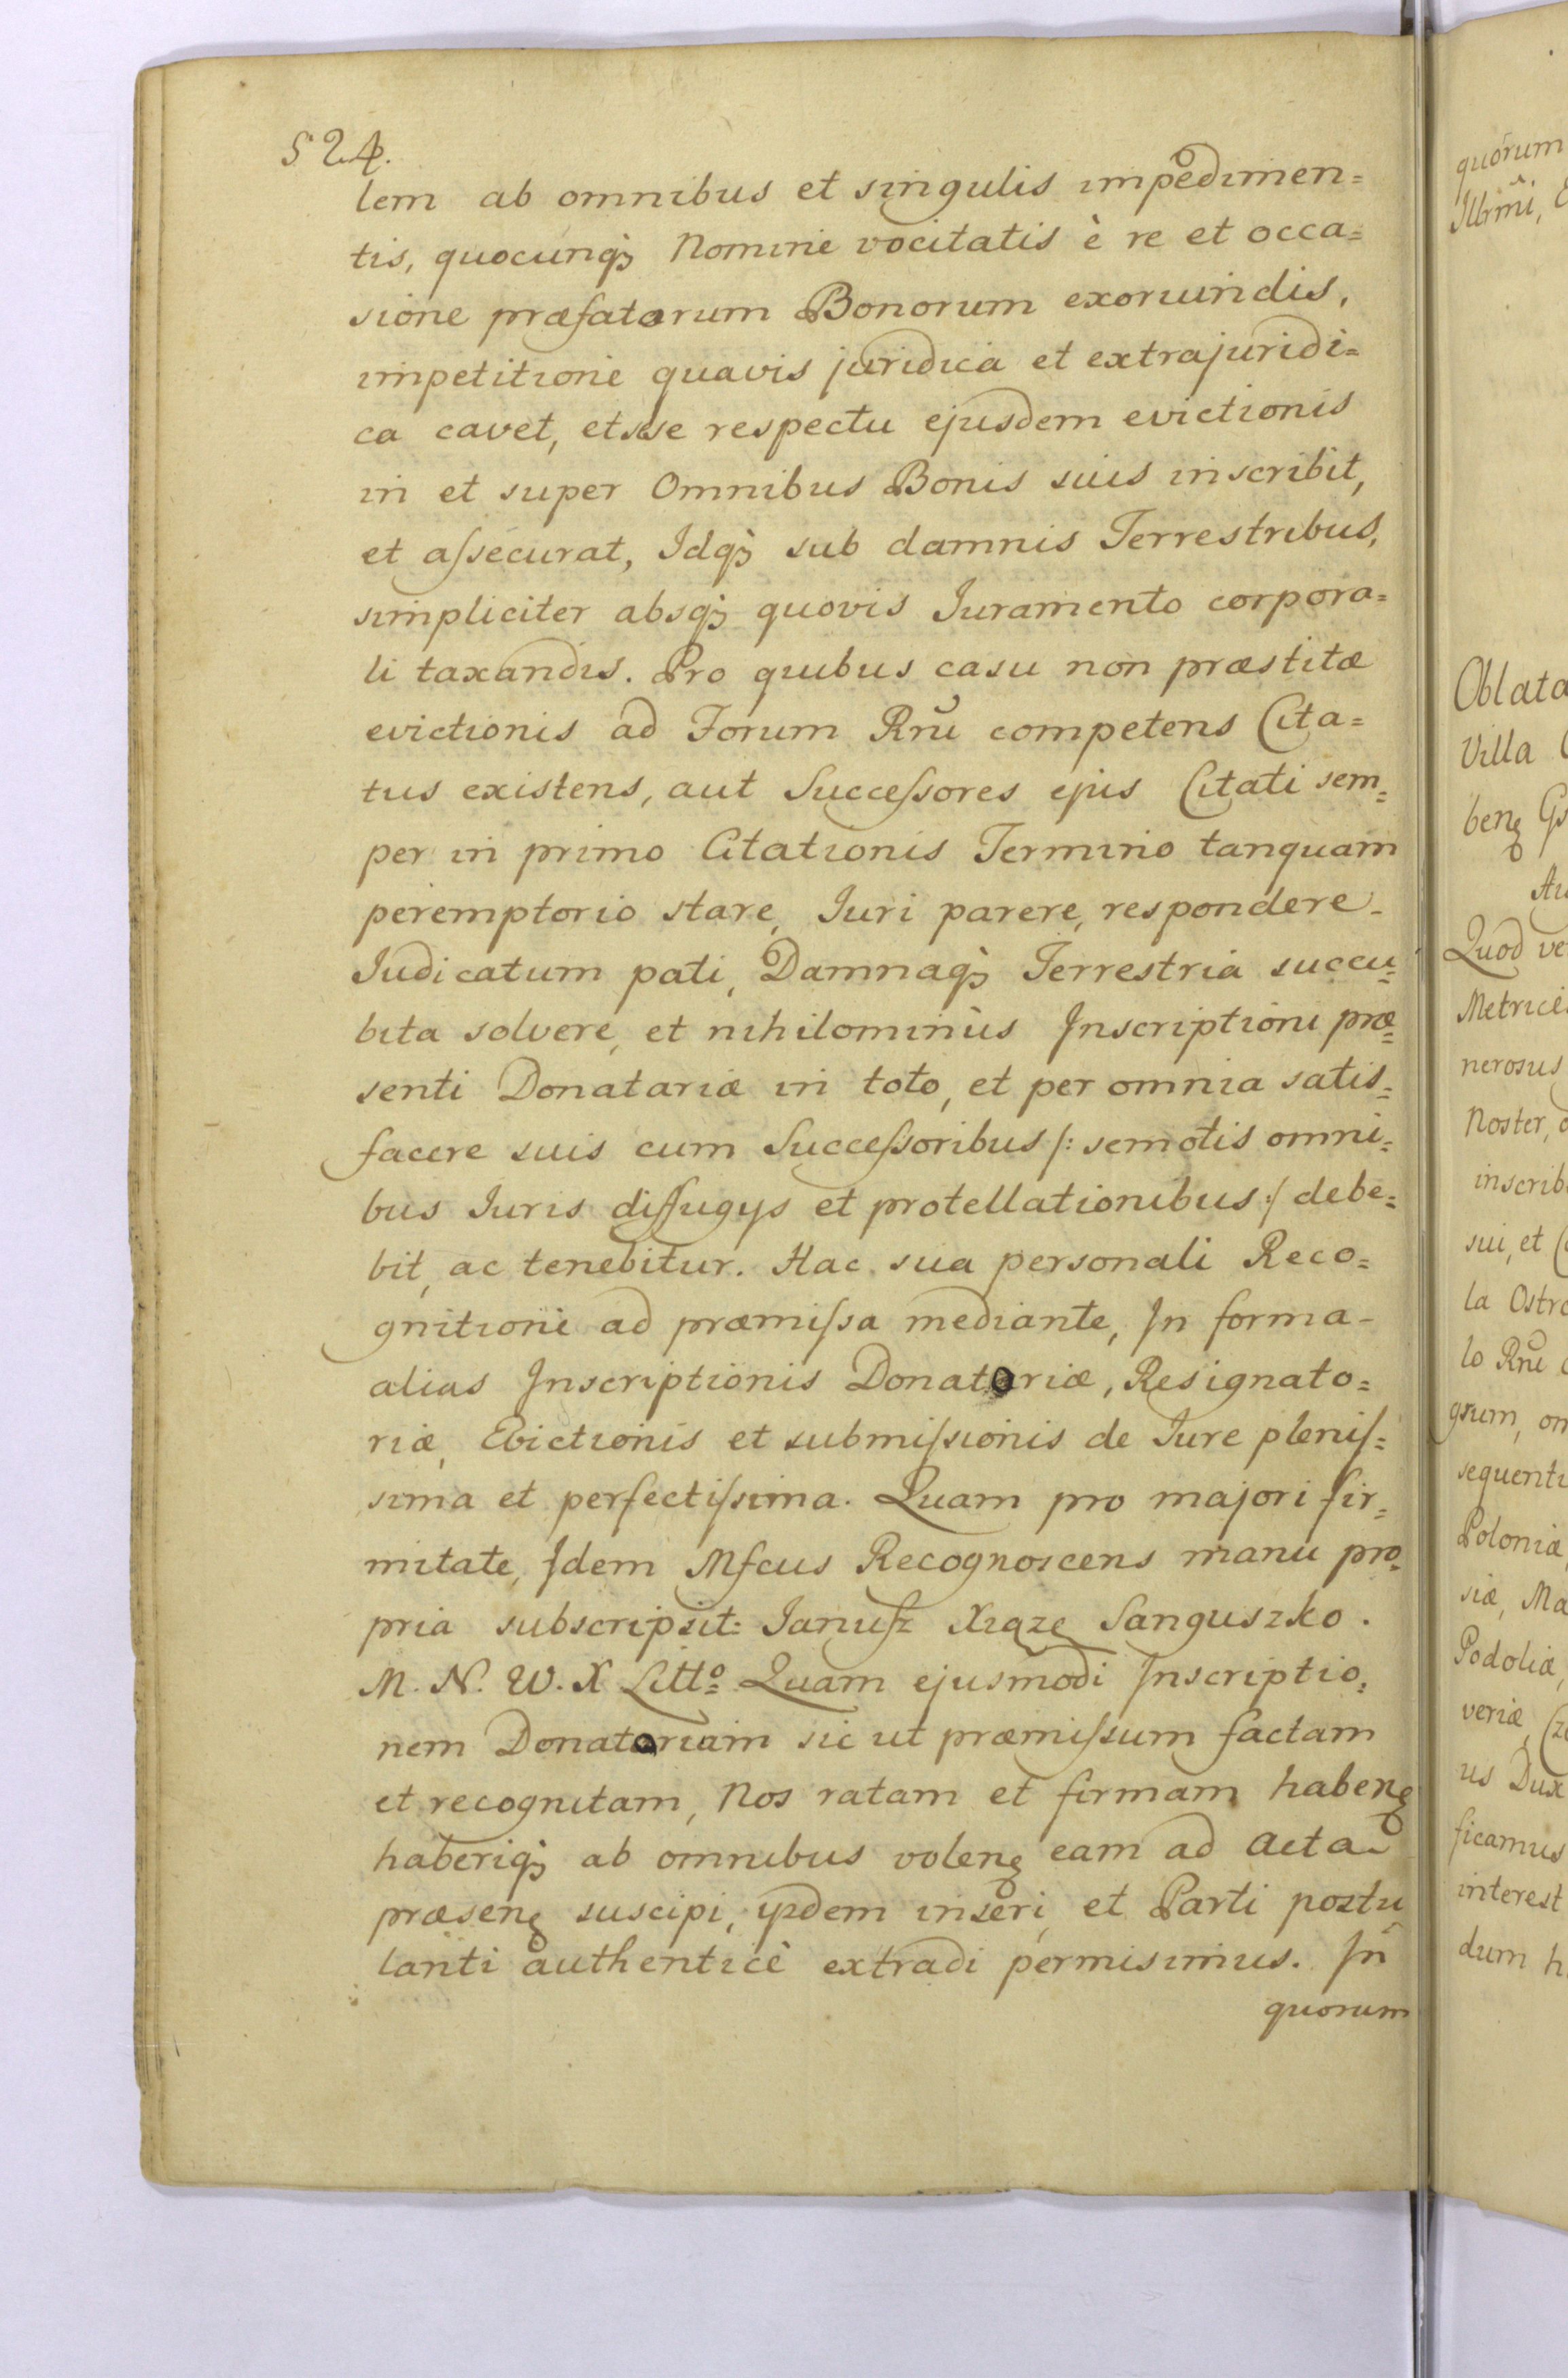 524.
lem ab omnibus et singulis impedimen=
tis, quocunq; Nomine vocitatis è re et occa=
sione præfatorum Bonorum exoriundis,
impetitione quavis juridica et extrajuridi=
ca cavet, et sese respectu ejusdem evictionis
in et super Omnibus Bonis suis inscribit,
et aſsecurat, Idq; sub damnis Terrestribus,
simpliciter absq; quovis Iuramento corpora=
li taxandis. Pro quibus casu non præstitæ
evictionis ad Forum Rnũ competens Cita=
tus existens, aut Succeſsores ejus Citati sem=
per in primo Citationis Termino tanquam
peremptorio stare, Iuri parere, respondere
Iudicatum pati, Damnaq; Terrestria succu=
bita solvere, et nihilominùs Inscriptioni præ=
senti Donatariæ in toto, et per omnia satis=
facere suis cum Succeſsoribus /: semotis omni=
bus Iuris diffugys et protellationibus :/ debe=
bit, ac tenebitur. Hac sua personali Reco=
gnitione ad præmiſsa mediante, In forma
alias Inscriptionis Donatoriæ, Resignato=
riæ, Evictionis et submiſsionis de Iure pleniſ=
sima et perfectiſsima. Quam pro majori fir=
mitate, Idem Mfcus Recognoscens manu pro=
pria subscripsit: Ianuſz Xiąze Sanguszko.
M. N. W. X Litto= Quam ejusmodi Inscriptio=
nem Donatoriam sic ut præmiſsum factam
et recognitam, Nos ratam et firmam habenȩ
haberiq; ab omnibus volenȩ eam ad Acta
præsenȩ suscipi, ysdem inseri, et Parti postu
lanti authenticè extradi permisimus. In
quorum
quorum
Illrmi,
Oblata
Villa
benȩ
Quod
Metrices
nerosus
Noster,
inscrib
sui, et
la Ostro
lo Rnũ
grum,
sequenti
Poloniæ
siæ, Ma
Podoliæ,
veriæ,
us Dux
ficamus
interest
dum h